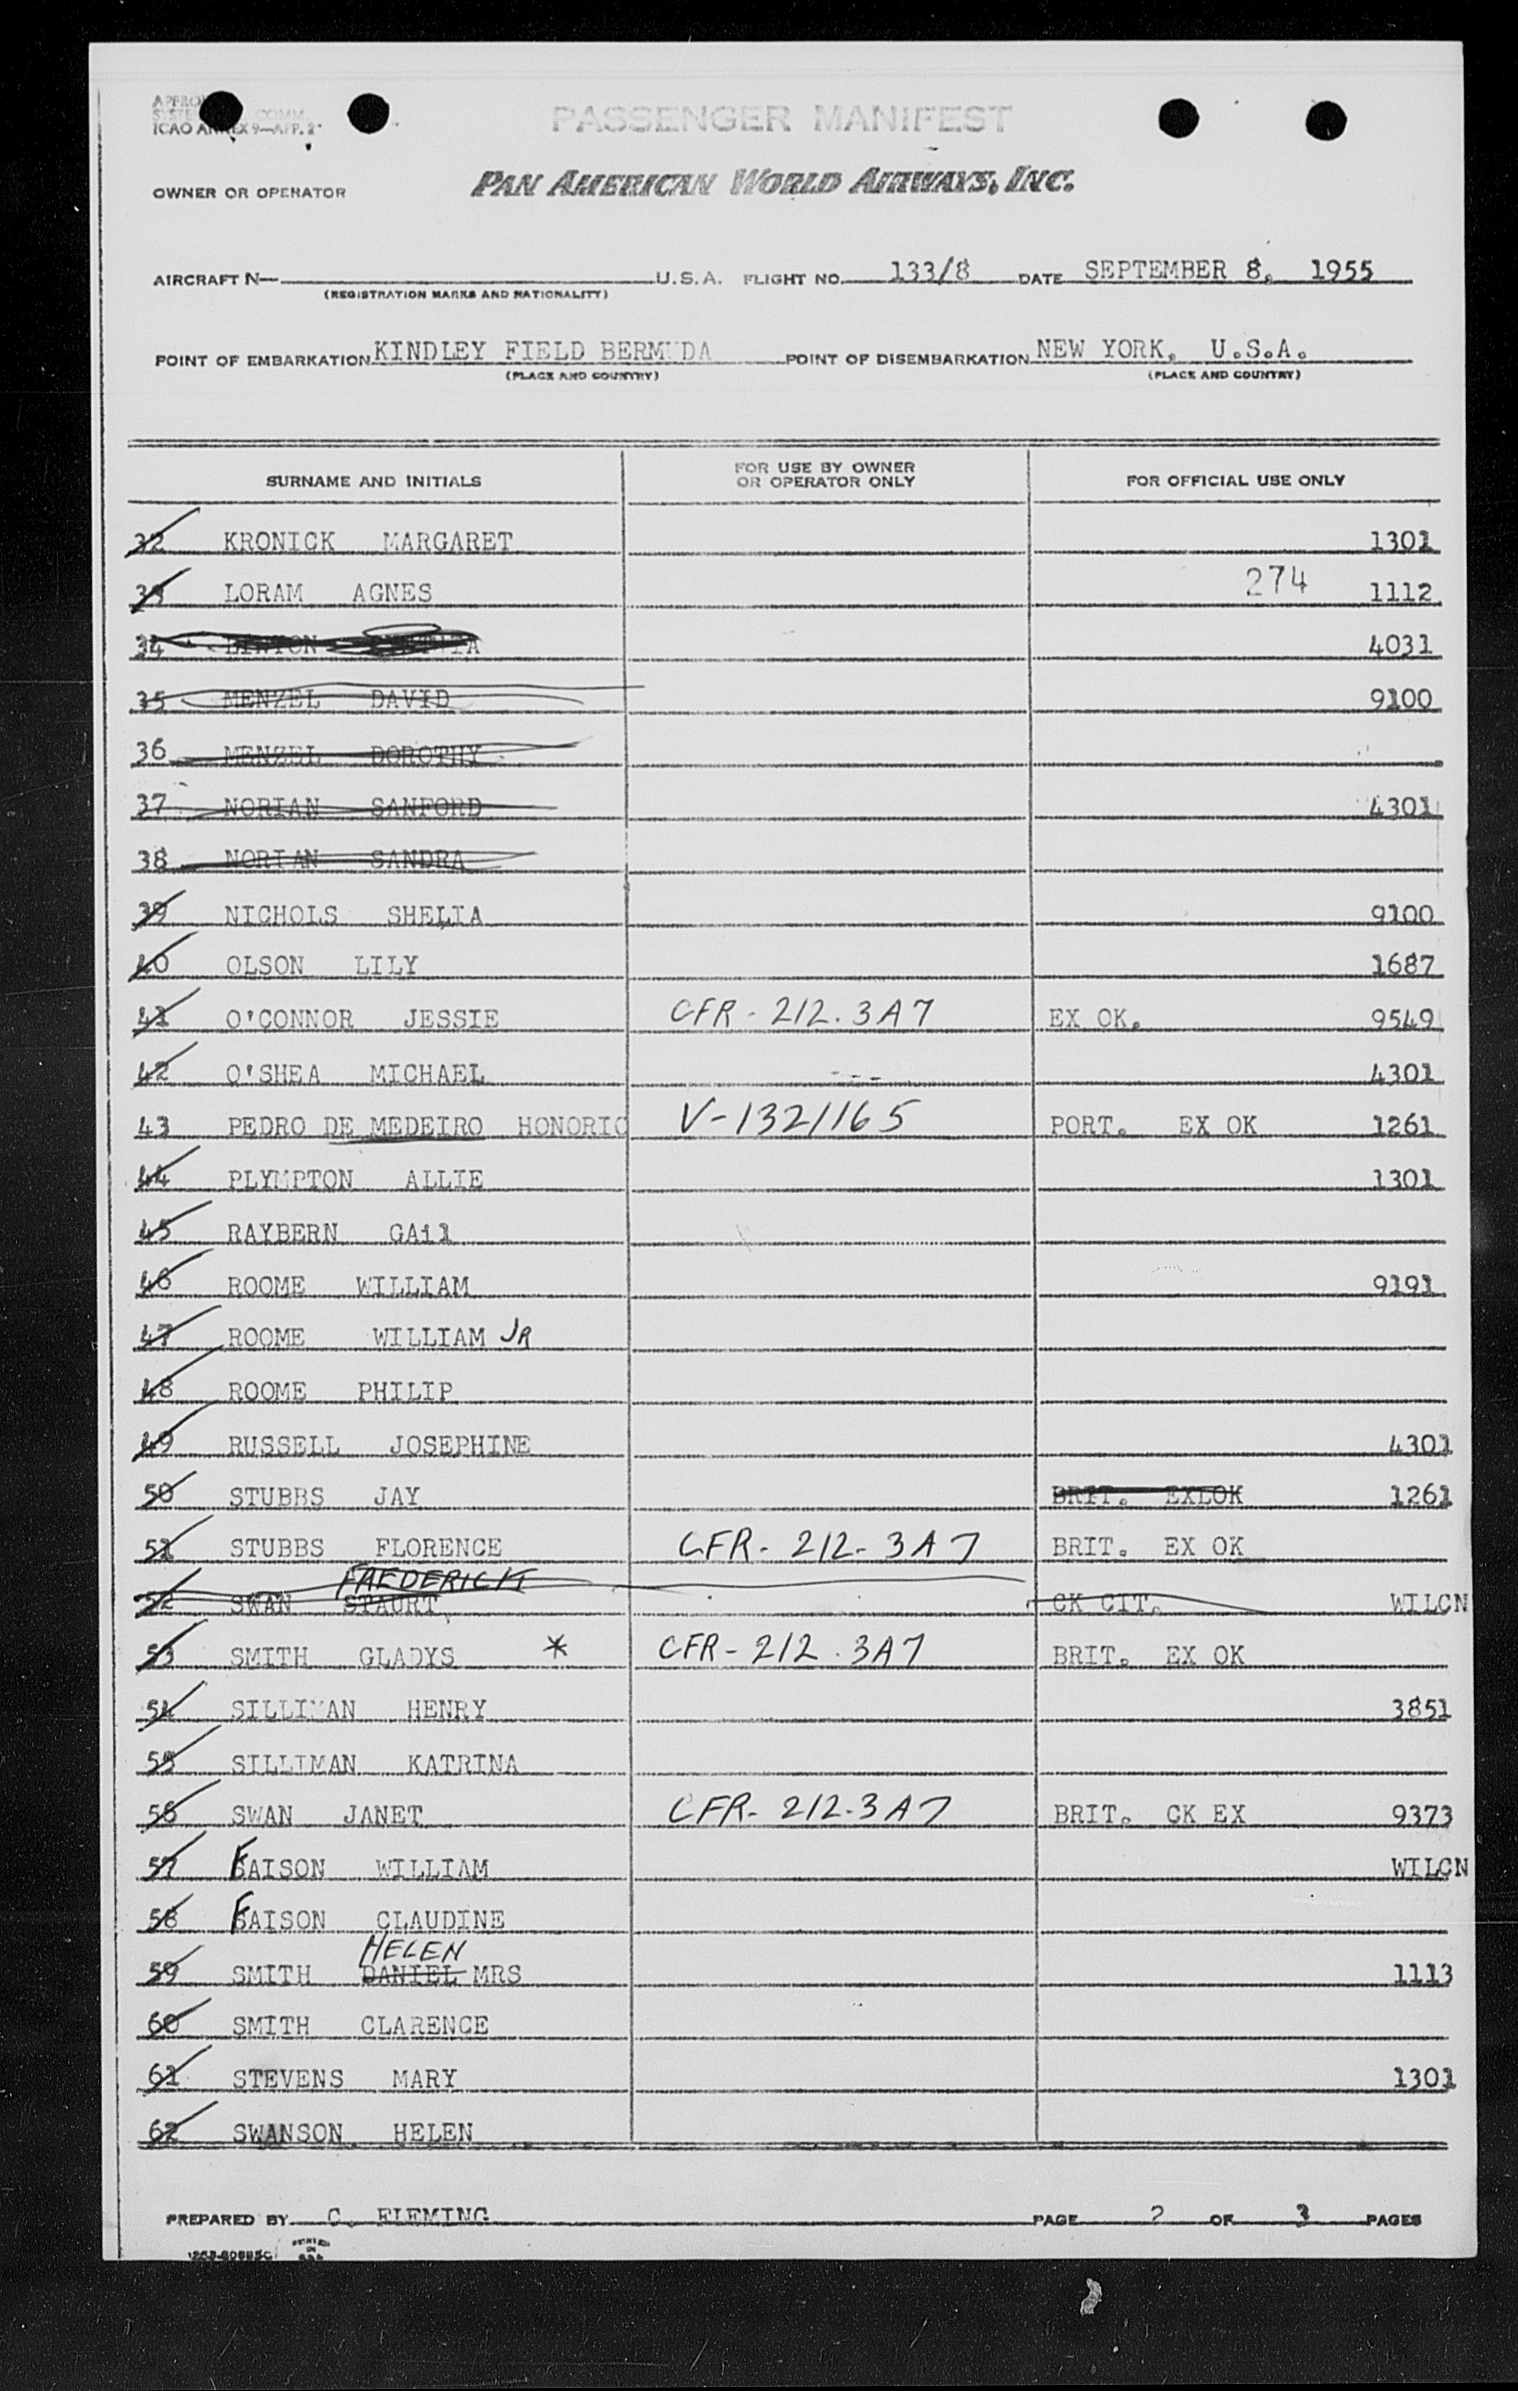 PASSENGER MANIFEST
ICAO ANNEX 9—APP. 2
OWNER OR OPERATOR PAN AMERICAN WORLD AIRWAYS, INC.
AIRCRAFT N— U.S.A. FLIGHT NO. 133/8 DATE SEPTEMBER 8, 1955
(REGISTRATION MARKS AND NATIONALITY)
POINT OF EMBARKATION KINDLEY FIELD BERMUDA POINT OF DISEMBARKATION NEW YORK, U.S.A.
(PLACE AND COUNTRY) (PLACE AND COUNTRY)
SURNAME AND INITIALS FOR USE BY OWNER OR OPERATOR ONLY FOR OFFICIAL USE ONLY
32 KRONICK MARGARET 1301
33 LORAM AGNES 274 1112
34 4031
35 MENZEL DAVID 9100
36 MENZEL DOROTHY
37 NORIAN SANFORD 4301
38 NORIAN SANDRA
39 NICHOLS SHELIA 9100
40 OLSON LILY 1687
41 O'CONNOR JESSIE CFR - 212.3A7 EX OK. 9549
42 O'SHEA MICHAEL --- 4301
43 PEDRO DE MEDEIRO HONORIO V-1321165 PORT. EX OK 1261
44 PLYMPTON ALLIE 1301
45 RAYBERN GAil
46 ROOME WILLIAM 9191
47 ROOME WILLIAM JR
48 ROOME PHILIP
49 RUSSELL JOSEPHINE 4301
50 STUBBS JAY BRIT. EXLOK 1261
51 STUBBS FLORENCE CFR - 212-3A7 BRIT. EX OK
FREDERICK
52 SWAN STAURT CK CIT. WILCN
53 SMITH GLADYS * CFR - 212.3A7 BRIT. EX OK
54 SILLIMAN HENRY 3851
55 SILLIMAN KATRINA
56 SWAN JANET CFR - 212-3A7 BRIT. CK EX 9373
57 FAISON WILLIAM WILCN
58 FAISON CLAUDINE
HELEN
59 SMITH DANIEL MRS 1113
60 SMITH CLARENCE
61 STEVENS MARY 1301
62 SWANSON HELEN
PREPARED BY C. FLEMING PAGE 2 OF 3 PAGES